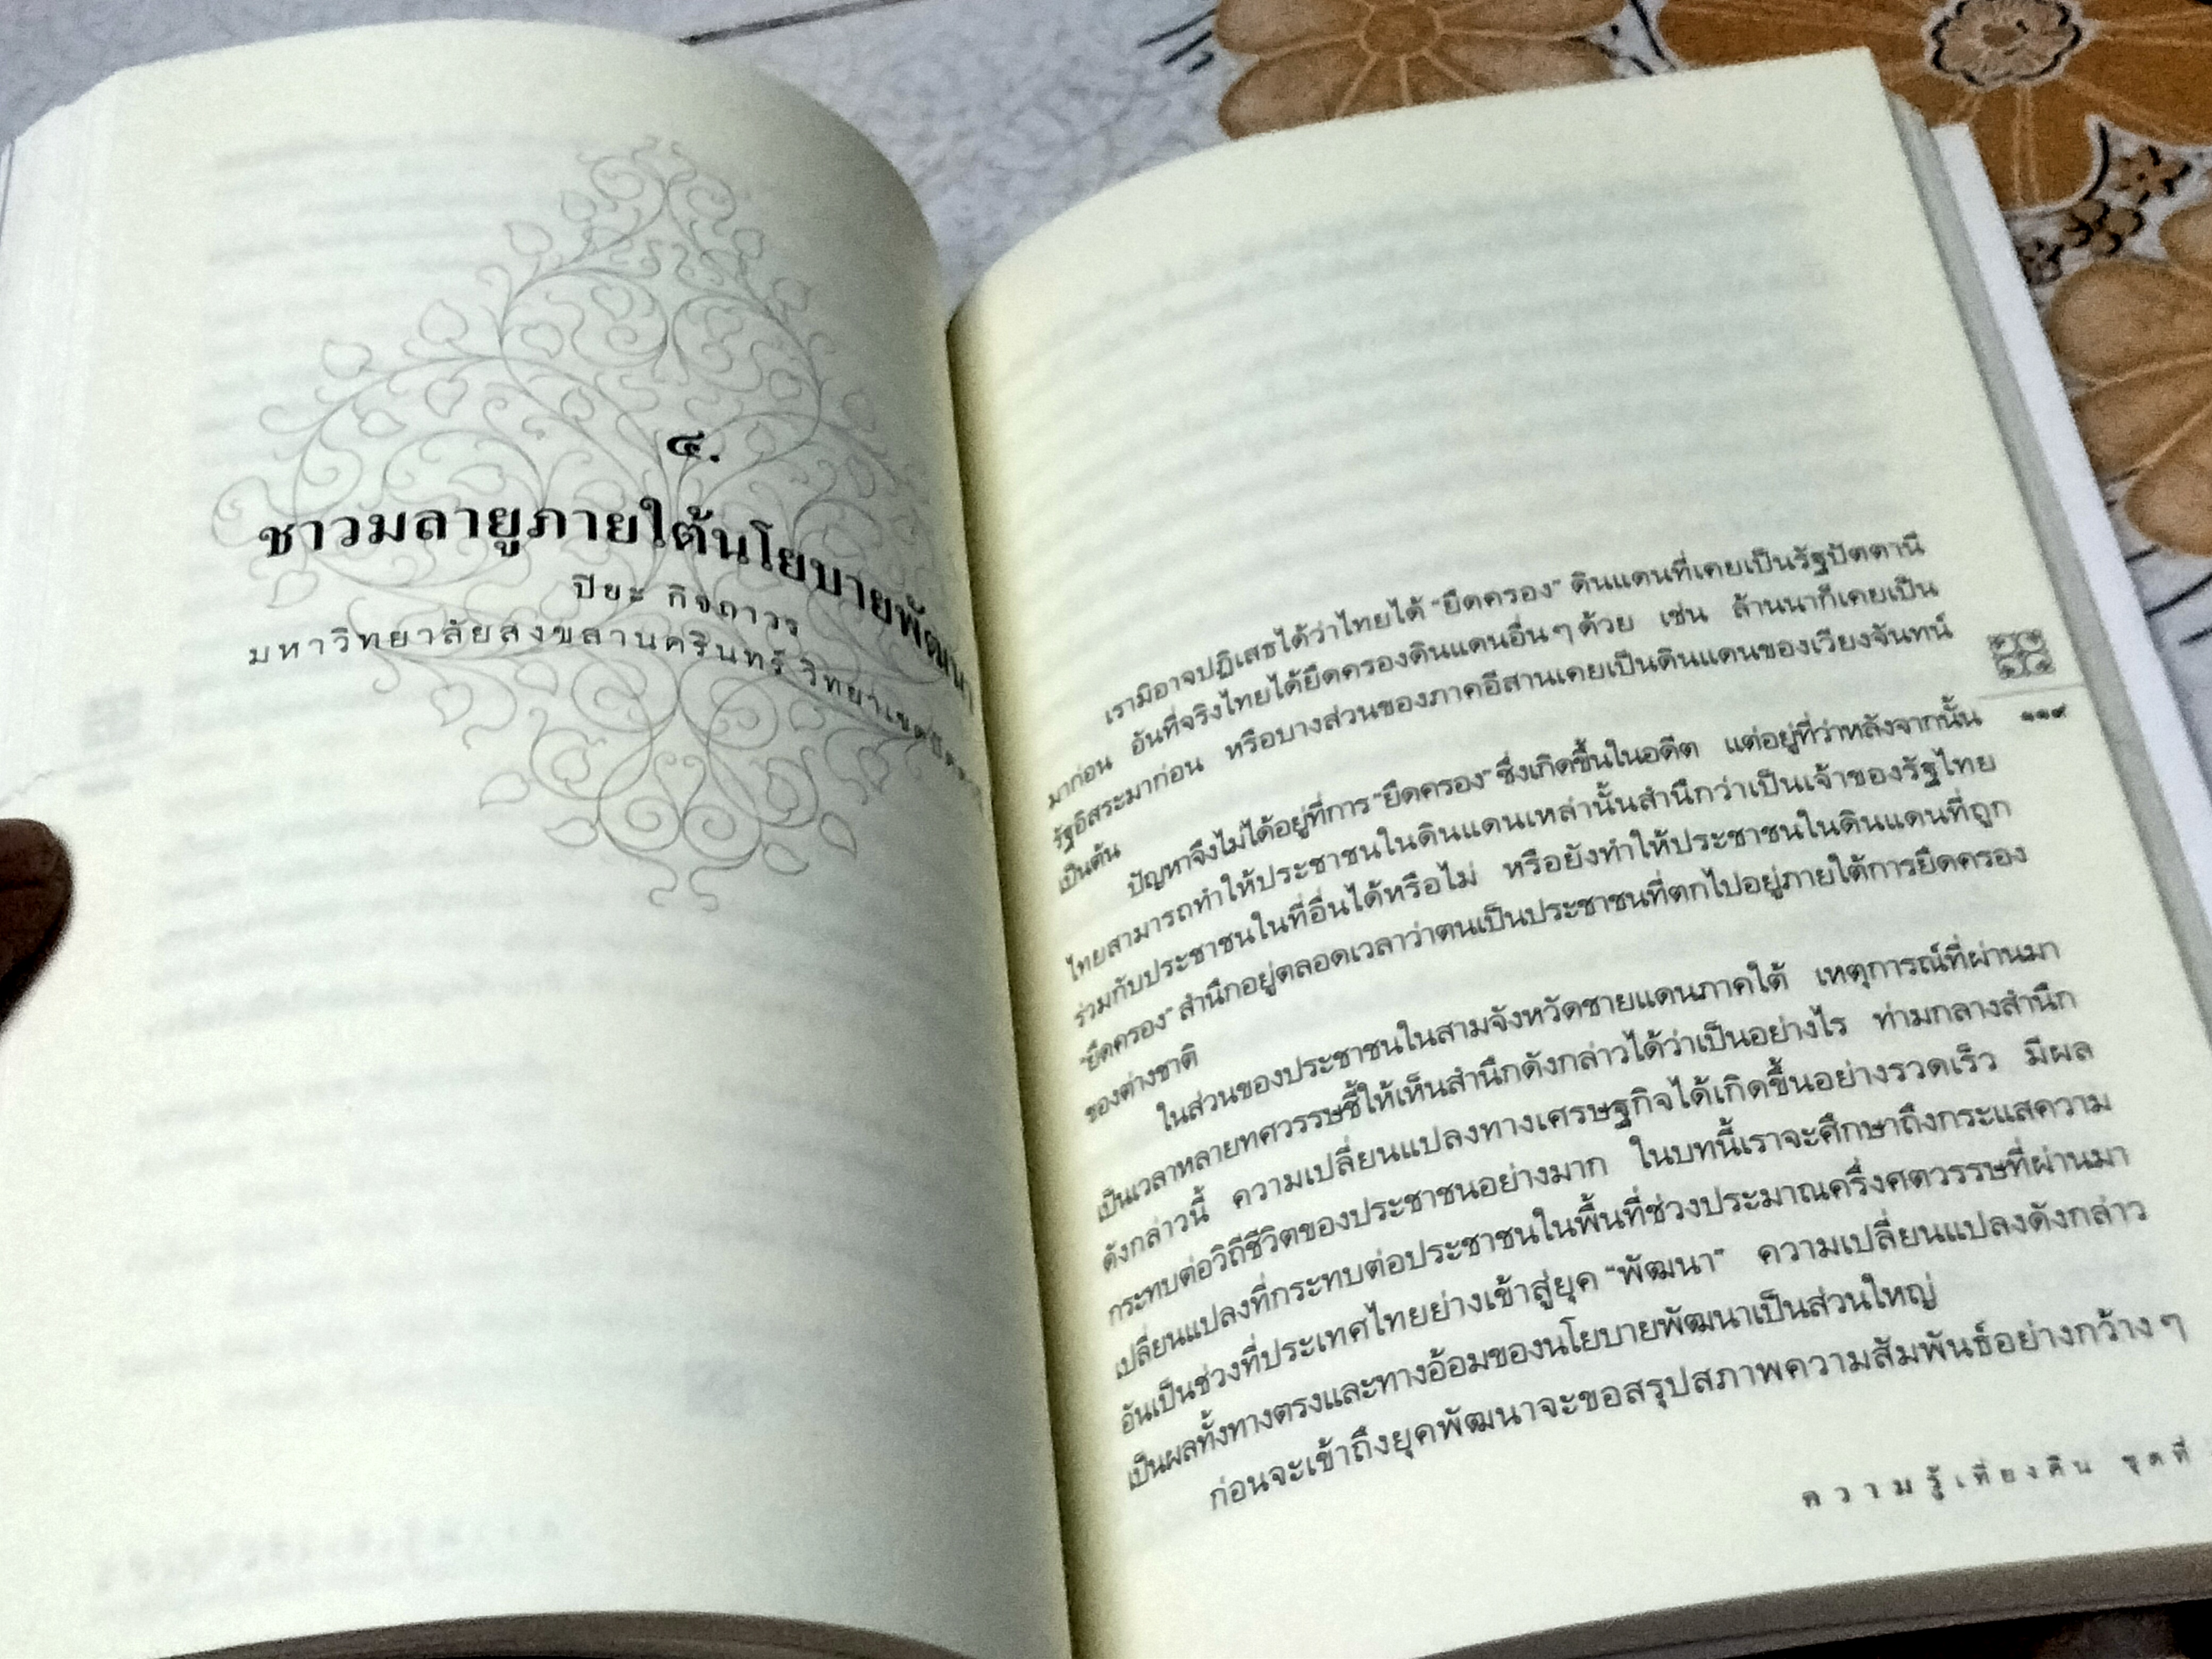 ๔.
ชาวมลายูภายใต้นโยบายพัฒนา
ปิยะ กิจถาวร
มหาวิทยาลัยสงขลานครินทร์ วิทยาเขต
เรามิอาจปฏิเสธได้ว่าไทยได้ “ยึดครอง” ดินแดนที่เคยเป็นรัฐปัตตานี
มาก่อน อันที่จริงไทยได้ยึดครองดินแดนอื่นๆ ด้วย เช่น ล้านนาก็เคยเป็น
รัฐอิสระมาก่อน หรือบางส่วนของภาคอีสานเคยเป็นดินแดนของเวียงจันทน์
เป็นต้น
ปัญหาจึงไม่ได้อยู่ที่การ “ยึดครอง” ซึ่งเกิดขึ้นในอดีต แต่อยู่ที่ว่าหลังจากนั้น
ไทยสามารถทำให้ประชาชนในดินแดนเหล่านั้นสำนึกว่าเป็นเจ้าของรัฐไทย
ร่วมกับประชาชนในที่อื่นได้หรือไม่ หรือยังทำให้ประชาชนในดินแดนที่ถูก
“ยึดครอง” สำนึกอยู่ตลอดเวลาว่าตนเป็นประชาชนที่ตกไปอยู่ภายใต้การยึดครอง
ของต่างชาติ
ในส่วนของประชาชนในสามจังหวัดชายแดนภาคใต้ เหตุการณ์ที่ผ่านมา
เป็นเวลาหลายทศวรรษชี้ให้เห็นสำนึกดังกล่าวได้ว่าเป็นอย่างไร ท่ามกลางสำนึก
ดังกล่าวนี้ ความเปลี่ยนแปลงทางเศรษฐกิจได้เกิดขึ้นอย่างรวดเร็ว มีผล
กระทบต่อวิถีชีวิตของประชาชนอย่างมาก ในบทนี้เราจะศึกษาถึงกระแสความ
เปลี่ยนแปลงที่กระทบต่อประชาชนในพื้นที่ช่วงประมาณครึ่งศตวรรษที่ผ่านมา
อันเป็นช่วงที่ประเทศไทยย่างเข้าสู่ยุค “พัฒนา” ความเปลี่ยนแปลงดังกล่าว
เป็นผลทั้งทางตรงและทางอ้อมของนโยบายพัฒนาเป็นส่วนใหญ่
ก่อนจะเข้าถึงยุคพัฒนาจะขอสรุปสภาพความสัมพันธ์อย่างกว้างๆ
๑๑๙
ความรู้เที่ยงคืน ชุดที่